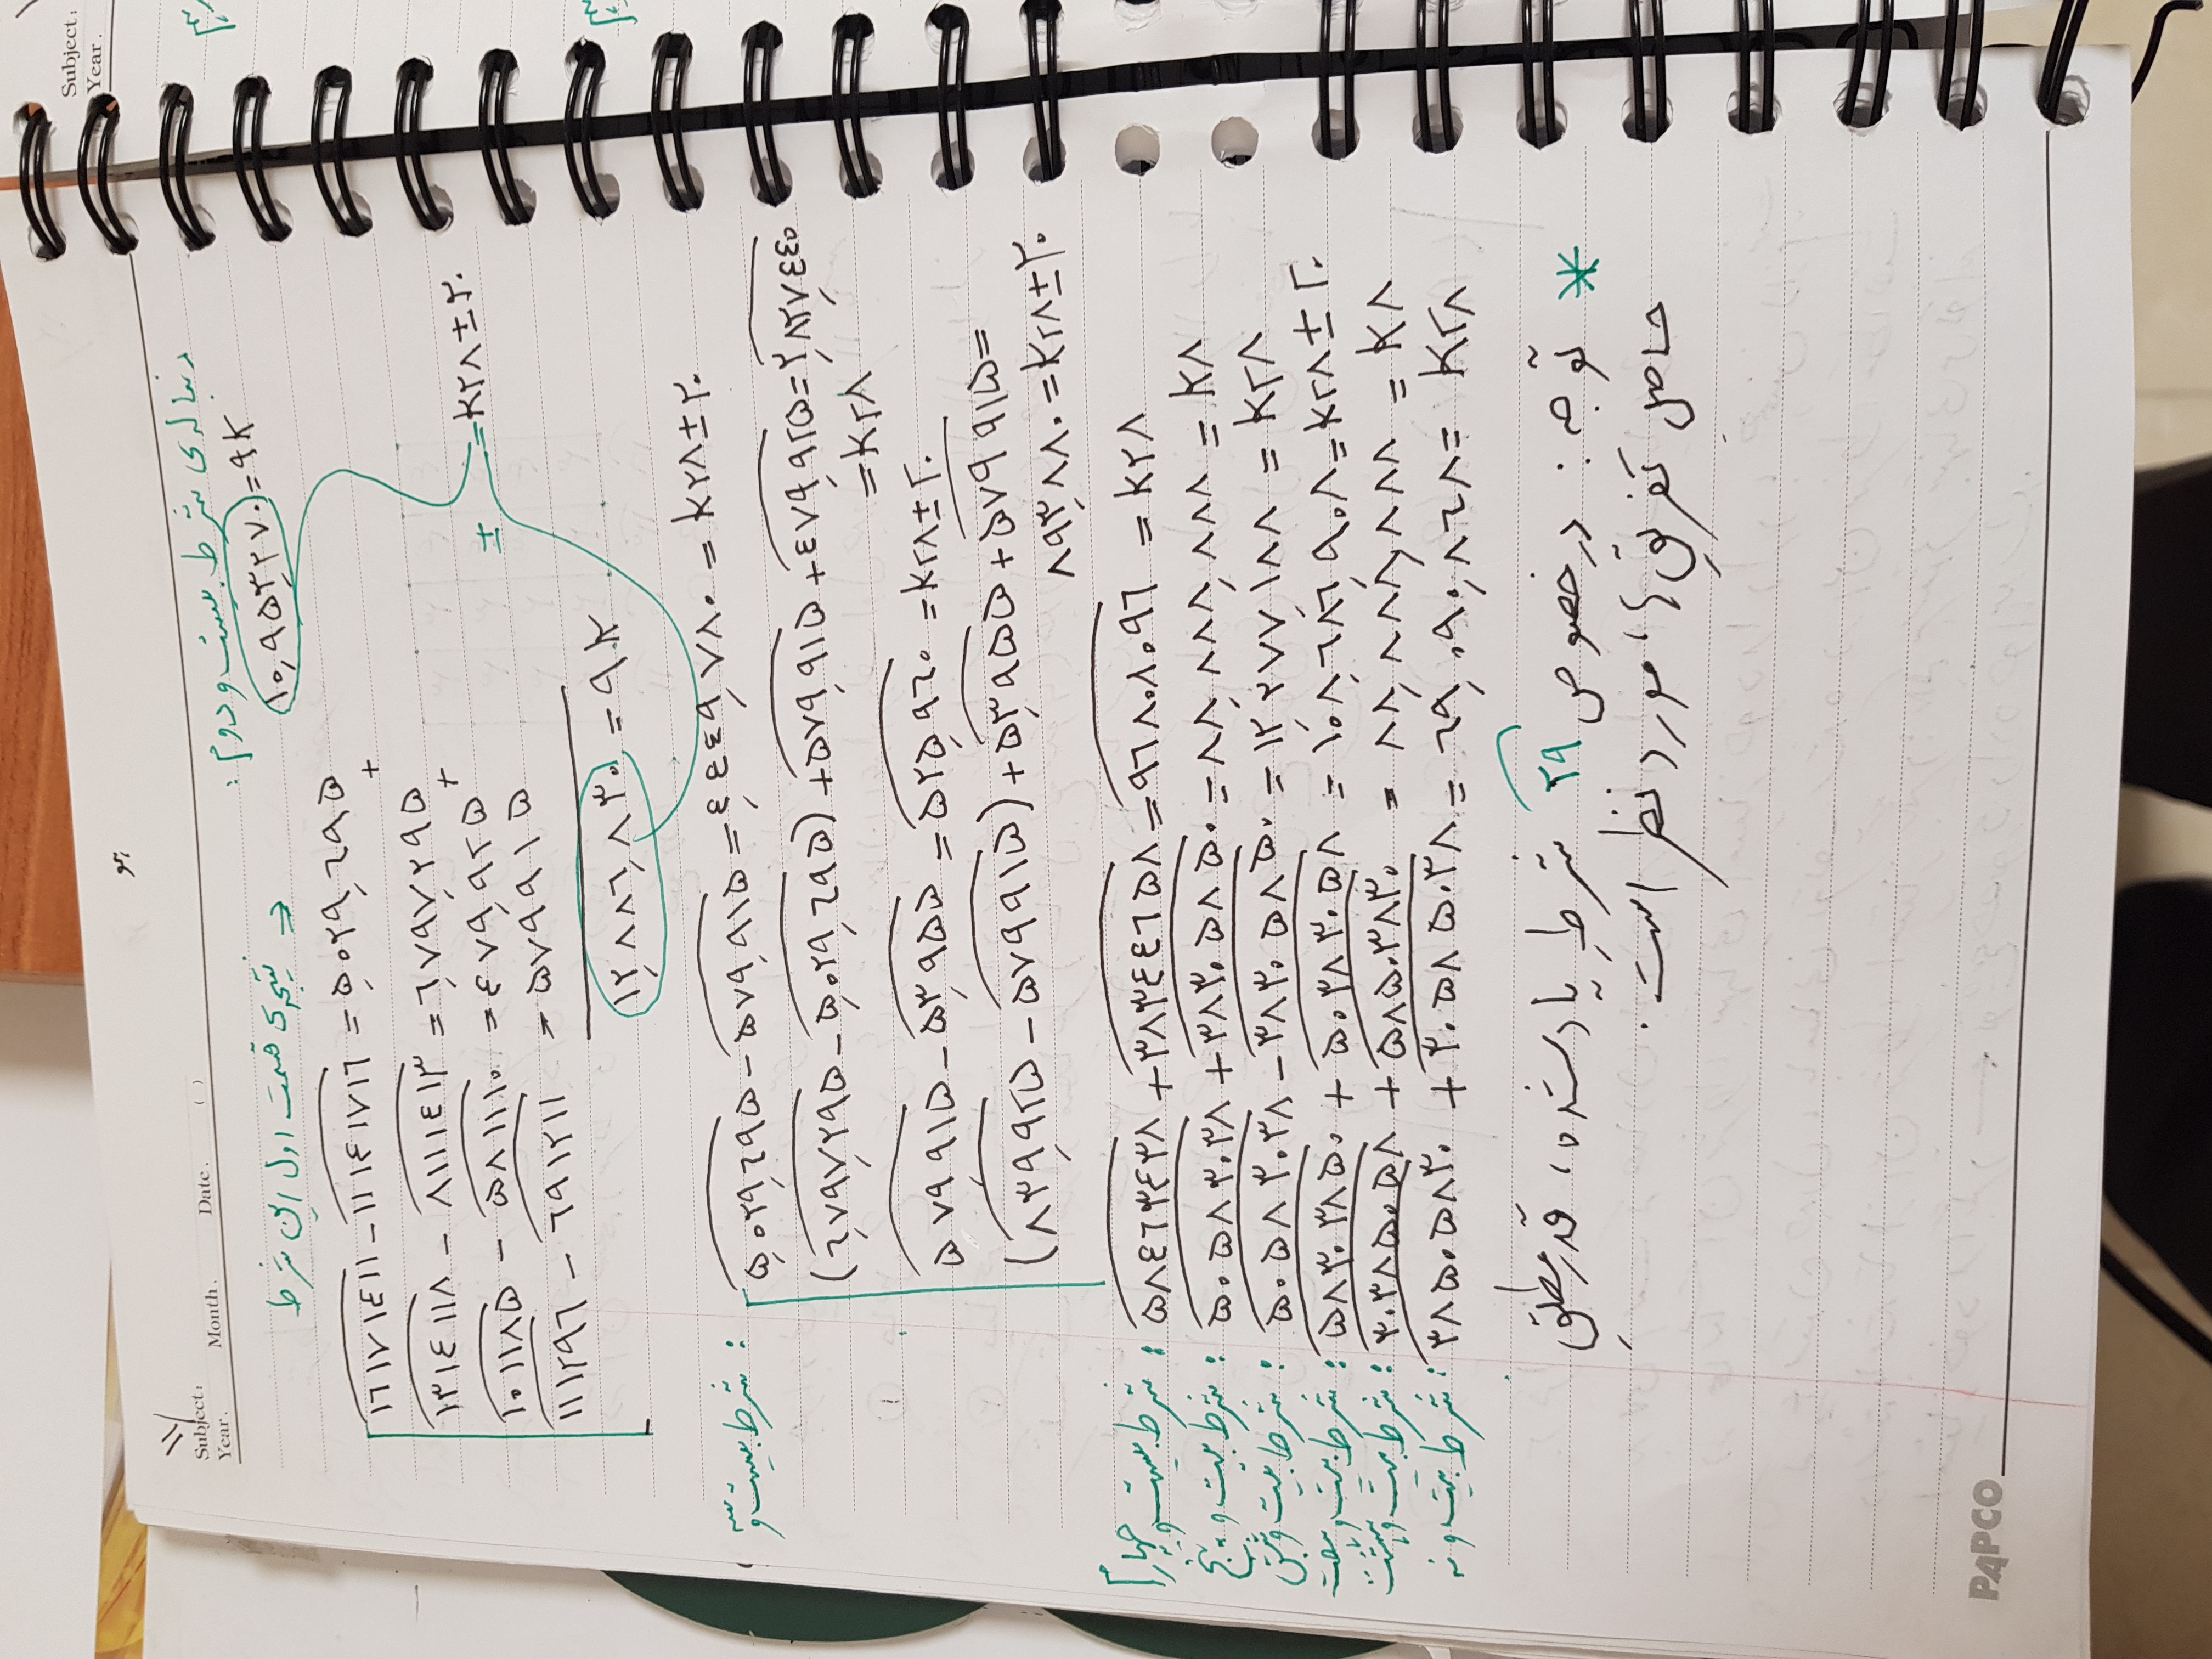 هو
۱۱/
Subject:
Year. Month. Date. ( )
دنباله‌ی شرط بیست و دوم:
۱۰,۹۵۳,۲۷۰ = ۹K
⇒ نتیجه‌ی قسمت اول این شرط
۱٦۱۷۱٤۱۱ - ۱۱۱٤۱۷۱٦ = ۵,۰۲۹,٦۹۵
+
۱۳۱٤۱۱۸ - ۸۱۱۱٤۱۳ = ٦,۷۹۷,۲۹۵
+
۱۰۱۱۸۵ - ۵۸۱۱۱۰ = ٤۷۹,۹۲۵
۱۱۱۲۹٦ - ٦۹۱۲۱۱ = ۵۷۹۹۱۵
± = K۲۸ ± ۲۰
۱۲,۸۸٦,۸۳۰ = ۹K
شرط بیست و سه:
۵,۰۲۹,٦۹۵ - ۵۷۹,۹۱۵ = ٤,٤٤۹,۷۸۰ = K۲۸ ± ۲۰
(٦,۷۹۷,۲۹۵ - ۵,۰۲۹,٦۹۵) + ۵۷۹,۹۱۵ + ٤۷۹,۹۲۵ = ۲,۸۲۷,٤٤۰
= K۲۸
۵۷۹,۹۱۵ - ۵۳,۹۵۵ = ۵۲۵,۹٦۰ = K۲۸ ± ۲۰
(۸۳۹,۹۲۵ - ۵۷۹۹۱۵) + ۵۳,۹۵۵ + ۵۷۹۹۱۵ =
۸۹۳,۸۸۰ = K۲۸ ± ۲۰
شرط بیست و چهارم: ۵۸٤٦۳٤۳۸ + ۳۸۳٤٤٦۵۸ = ۹٦۸۰۸۰۹٦ = K۲۸
شرط بیست و پنج: ۵۰۵۸۳۰۳۸ + ۳۸۳۰۵۸۵۰ = ۸۸,۸۸۸,۸۸۸ = K۸
شرط بیست و شش: ۵۰۵۸۳۰۳۸ - ۳۸۳۰۵۸۵۰ = ۱۲,۲۷۷,۱۸۸ = K۲۸
شرط بیست و هفت: ۵۸۳۰۳۸۵۰ + ۵۰۳۸۳۰۵۸ = ۱۰۸,٦۸٦,۹۰۸ = K۲۸ ± ۲۰
شرط بیست و هشت: ۳۰۳۸۵۰۵۸ + ۵۸۵۰۳۸۳۰ = ۸۸,۸۸۸,۸۸۸ = K۸
شرط بیست و نه: ۳۸۵۰۵۸۳۰ + ۳۰۵۸۵۰۳۸ = ٦۹,۰۹۰,۸٦۸ = K۲۸
* توجه: در خصوص ۲۹ شرطِ یاد شده، قدر مطلقِ
حاصل تفریق‌ها، مورد نظر است.
PAPCO
Subject:
Year.